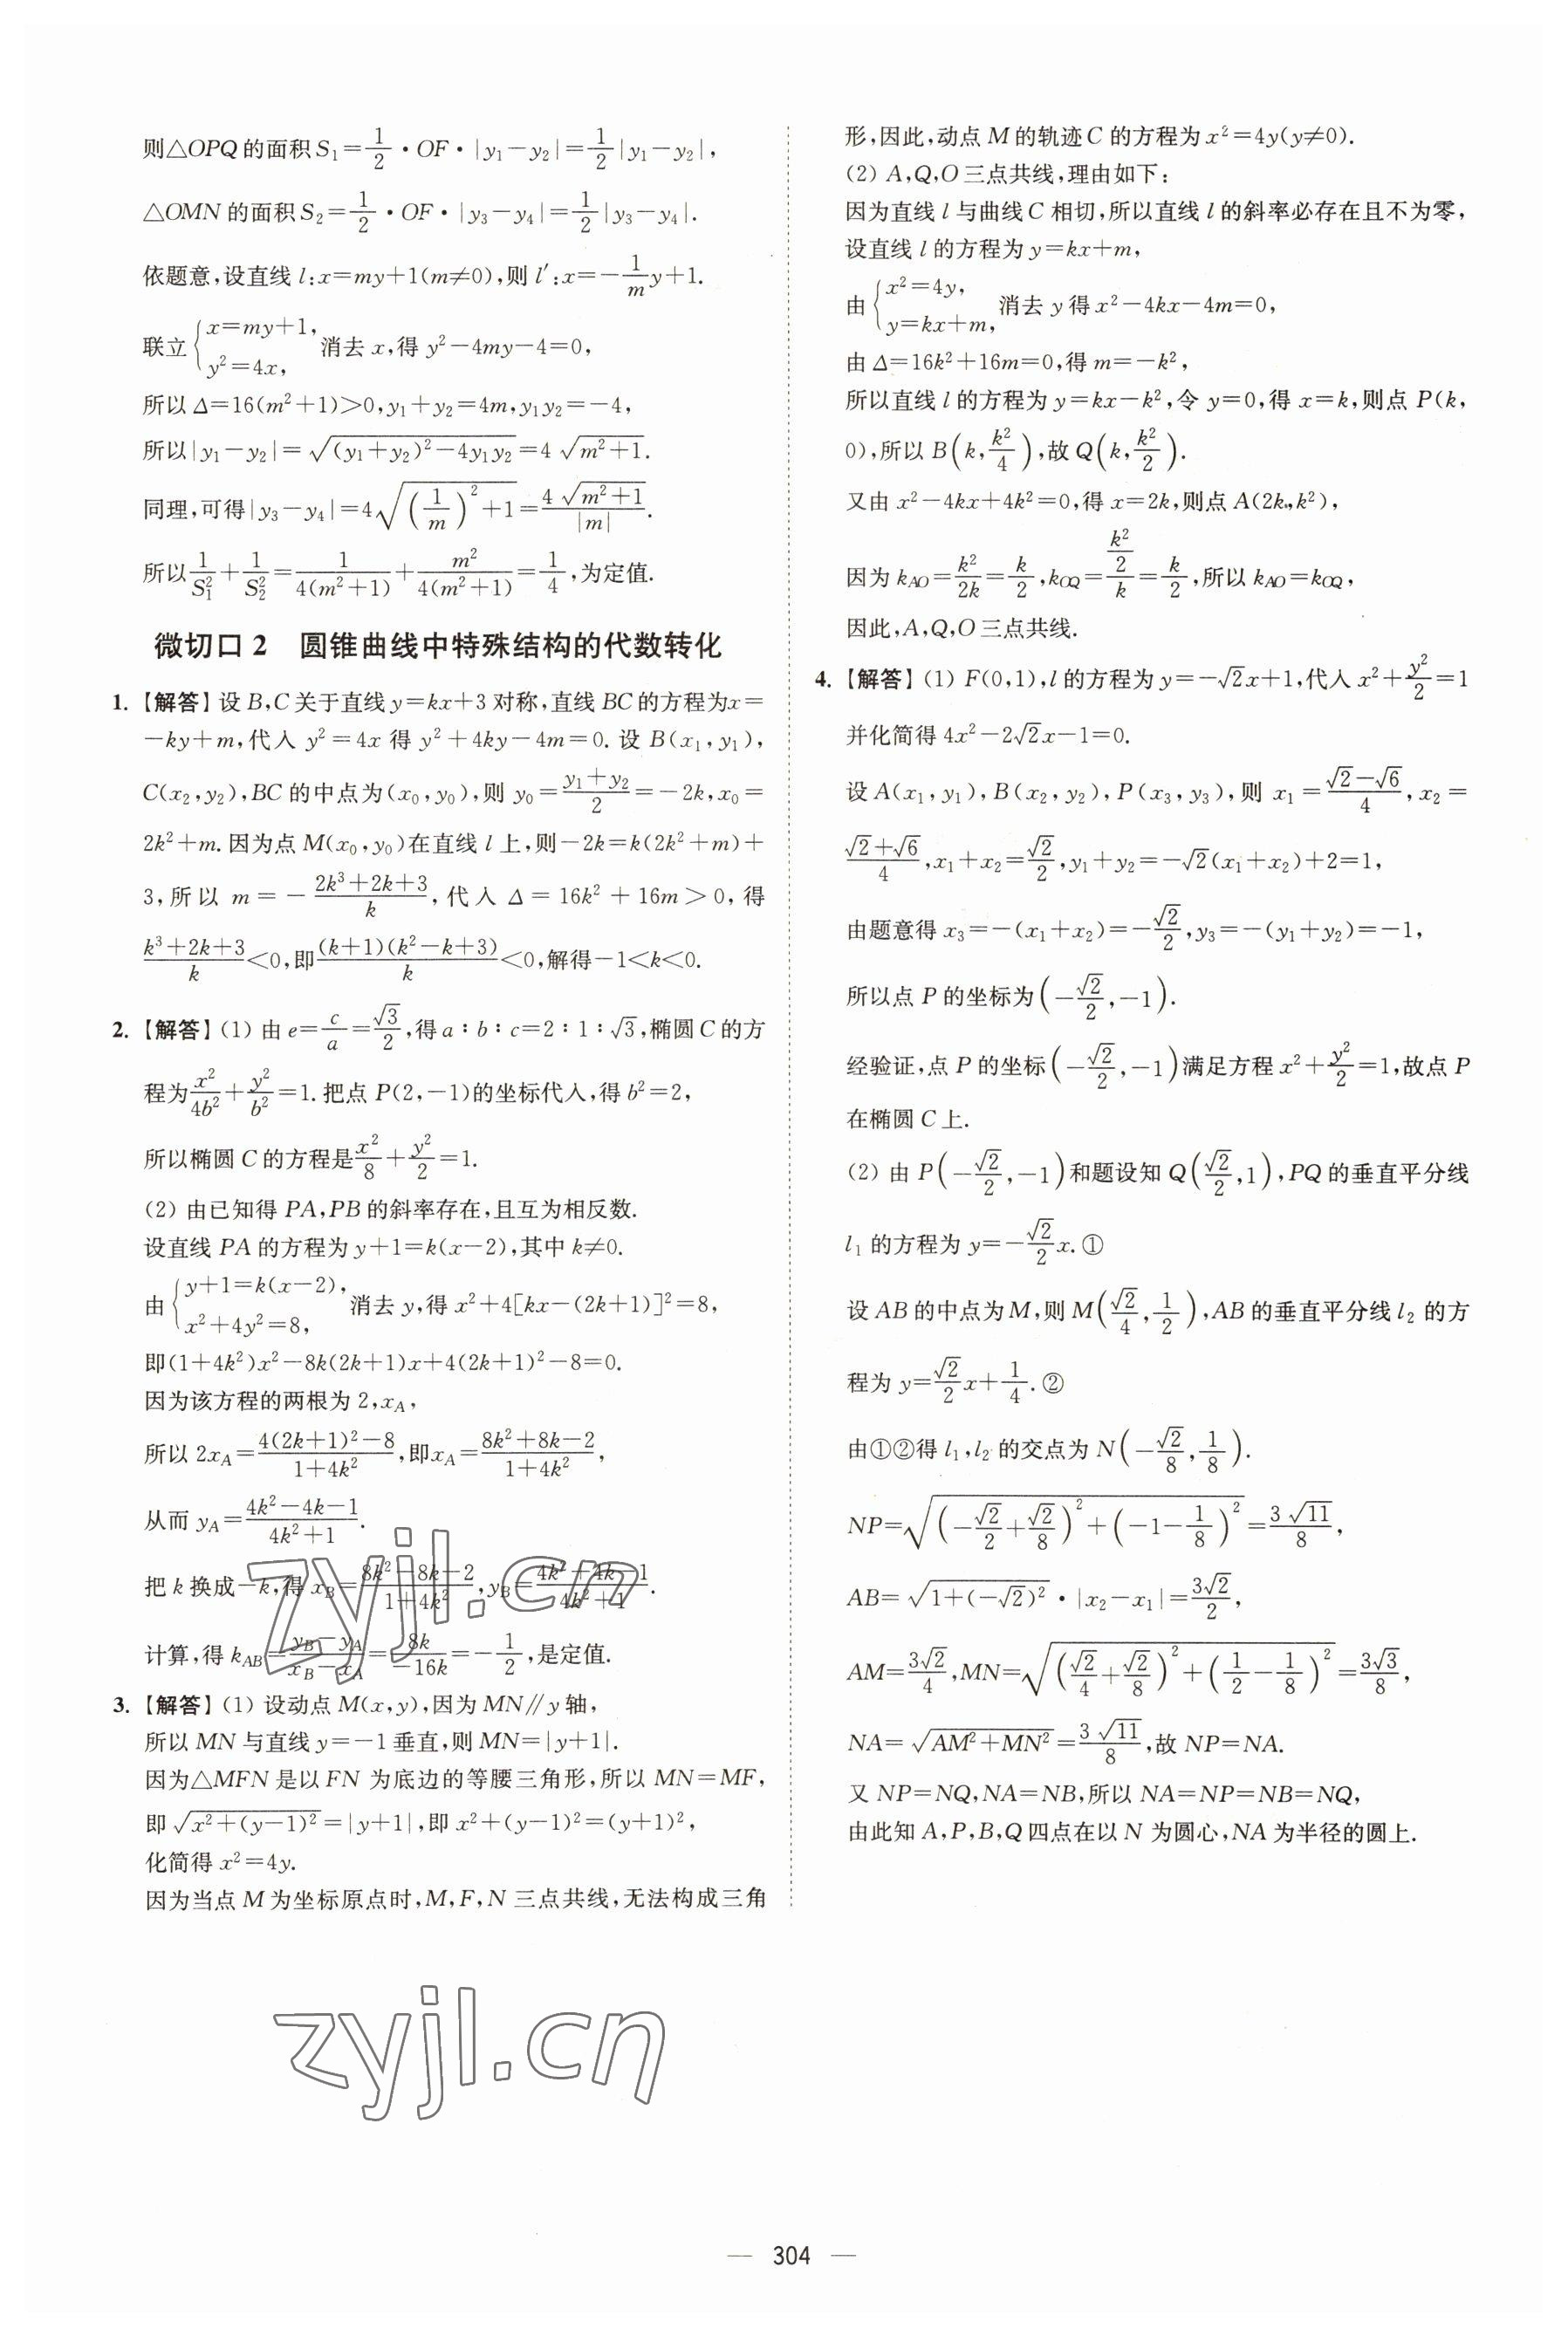 则△OPQ的面积S₁=1/2·OF·|y₁-y₂|=1/2|y₁-y₂|,
△OMN的面积S₂=1/2·OF·|y₃-y₄|=1/2|y₃-y₄|.
依题意,设直线l:x=my+1(m≠0),则l′:x=-1/m y+1.
联立{x=my+1, y²=4x, 消去x,得y²-4my-4=0,
所以Δ=16(m²+1)>0,y₁+y₂=4m,y₁y₂=-4,
所以|y₁-y₂|=√((y₁+y₂)²-4y₁y₂)=4√(m²+1).
同理,可得|y₃-y₄|=4√((1/m)²+1)=4√(m²+1)/|m|.
所以1/S₁²+1/S₂²=1/(4(m²+1))+m²/(4(m²+1))=1/4,为定值.
微切口2 圆锥曲线中特殊结构的代数转化
1.【解答】设B,C关于直线y=kx+3对称,直线BC的方程为x=
-ky+m,代入y²=4x得y²+4ky-4m=0.设B(x₁,y₁),
C(x₂,y₂),BC的中点为(x₀,y₀),则y₀=(y₁+y₂)/2=-2k,x₀=
2k²+m.因为点M(x₀,y₀)在直线l上,则-2k=k(2k²+m)+
3,所以m=-(2k³+2k+3)/k,代入Δ=16k²+16m>0,得
(k³+2k+3)/k<0,即(k+1)(k²-k+3)/k<0,解得-1<k<0.
2.【解答】(1) 由e=c/a=√3/2,得a∶b∶c=2∶1∶√3,椭圆C的方
程为x²/4b²+y²/b²=1.把点P(2,-1)的坐标代入,得b²=2,
所以椭圆C的方程是x²/8+y²/2=1.
(2) 由已知得PA,PB的斜率存在,且互为相反数.
设直线PA的方程为y+1=k(x-2),其中k≠0.
由{y+1=k(x-2), x²+4y²=8, 消去y,得x²+4[kx-(2k+1)]²=8,
即(1+4k²)x²-8k(2k+1)x+4(2k+1)²-8=0.
因为该方程的两根为2,x_A,
所以2x_A=(4(2k+1)²-8)/(1+4k²),即x_A=(8k²+8k-2)/(1+4k²),
从而y_A=(4k²-4k-1)/(4k²+1).
把k换成-k,得x_B=(8k²-8k-2)/(1+4k²),y_B=(4k²+4k-1)/(4k²+1).
计算,得k_AB=(y_B-y_A)/(x_B-x_A)=8k/(-16k)=-1/2,是定值.
3.【解答】(1) 设动点M(x,y),因为MN∥y轴,
所以MN与直线y=-1垂直,则MN=|y+1|.
因为△MFN是以FN为底边的等腰三角形,所以MN=MF,
即√(x²+(y-1)²)=|y+1|,即x²+(y-1)²=(y+1)²,
化简得x²=4y.
因为当点M为坐标原点时,M,F,N三点共线,无法构成三角
形,因此,动点M的轨迹C的方程为x²=4y(y≠0).
(2) A,Q,O三点共线,理由如下:
因为直线l与曲线C相切,所以直线l的斜率必存在且不为零,
设直线l的方程为y=kx+m,
由{x²=4y, y=kx+m, 消去y得x²-4kx-4m=0,
由Δ=16k²+16m=0,得m=-k²,
所以直线l的方程为y=kx-k²,令y=0,得x=k,则点P(k,
0),所以B(k,k²/4),故Q(k,k²/2).
又由x²-4kx+4k²=0,得x=2k,则点A(2k,k²),
因为k_AO=k²/2k=k/2,k_OQ=(k²/2)/k=k/2,所以k_AO=k_OQ,
因此,A,Q,O三点共线.
4.【解答】(1) F(0,1),l的方程为y=-√2x+1,代入x²+y²/2=1
并化简得4x²-2√2x-1=0.
设A(x₁,y₁),B(x₂,y₂),P(x₃,y₃),则x₁=(√2-√6)/4,x₂=
(√2+√6)/4,x₁+x₂=√2/2,y₁+y₂=-√2(x₁+x₂)+2=1,
由题意得x₃=-(x₁+x₂)=-√2/2,y₃=-(y₁+y₂)=-1,
所以点P的坐标为(-√2/2,-1).
经验证,点P的坐标(-√2/2,-1)满足方程x²+y²/2=1,故点P
在椭圆C上.
(2) 由P(-√2/2,-1)和题设知Q(√2/2,1),PQ的垂直平分线
l₁的方程为y=-√2/2 x.①
设AB的中点为M,则M(√2/4,1/2),AB的垂直平分线l₂的方
程为y=√2/2 x+1/4.②
由①②得l₁,l₂的交点为N(-√2/8,1/8).
NP=√((-√2/2+√2/8)²+(-1-1/8)²)=3√11/8,
AB=√(1+(-√2)²)·|x₂-x₁|=3√2/2,
AM=3√2/4,MN=√((√2/4+√2/8)²+(1/2-1/8)²)=3√3/8,
NA=√(AM²+MN²)=3√11/8,故NP=NA.
又NP=NQ,NA=NB,所以NA=NP=NB=NQ,
由此知A,P,B,Q四点在以N为圆心,NA为半径的圆上.
zyjl.cn
zyjl.cn
— 304 —